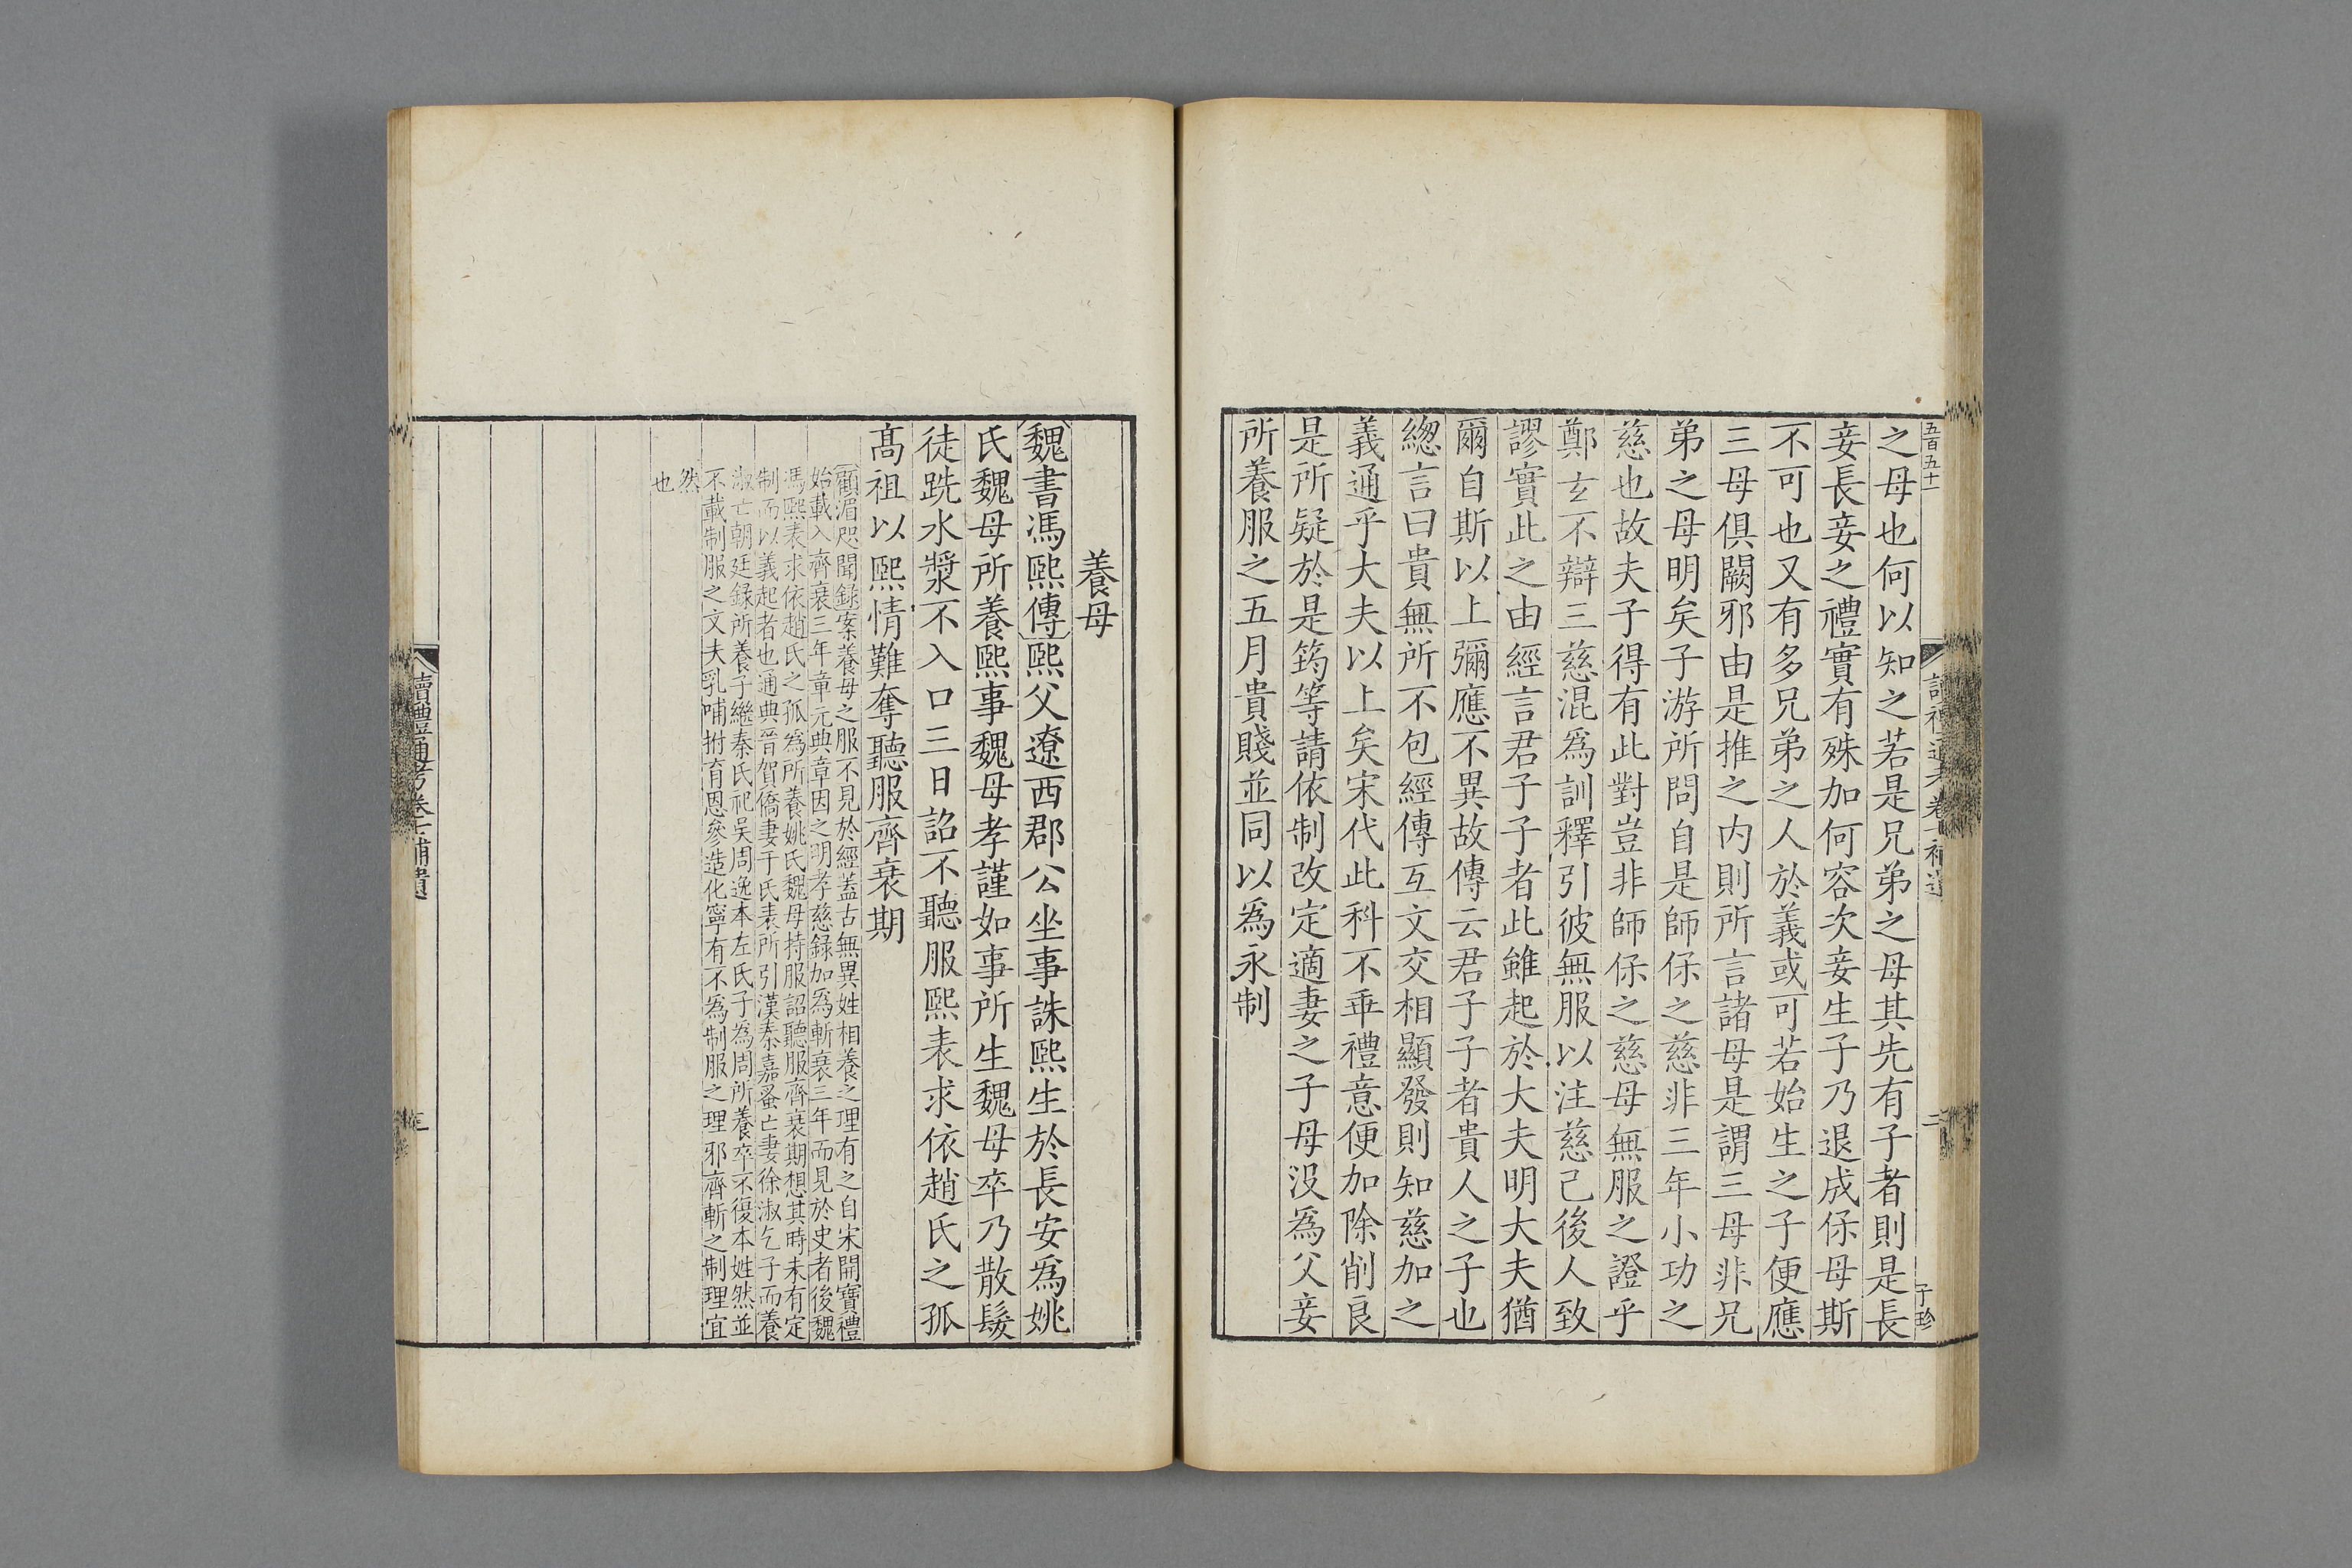 五百五十一
讀禮通考卷十補遺
二
子珍
之母也何以知之若是兄弟之母其先有子者則是長
妾長妾之禮實有殊加何容次妾生子乃退成保母斯
不可也又有多兄弟之人於義或可若始生之子便應
三母俱闕邪由是推之内則所言諸母是謂三母非兄
弟之母明矣子游所問自是師保之慈非三年小功之
慈也故夫子得有此對豈非師保之慈母無服之證乎
鄭玄不辯三慈混爲訓釋引彼無服以注慈己後人致
謬實此之由經言君子子者此雖起於大夫明大夫猶
爾自斯以上彌應不異故傳云君子子者貴人之子也
緫言曰貴無所不包經傳互文交相顯發則知慈加之
義通乎大夫以上矣宋代此科不乖禮意便加除削良
是所疑於是筠等請依制改定適妻之子母没爲父妾
所養服之五月貴賤並同以爲永制
養母
魏書馮熙傳熙父遼西郡公坐事誅熙生於長安爲姚
氏魏母所養熙事魏母孝謹如事所生魏母卒乃散髮
徒跣水漿不入口三日詔不聽服熙表求依趙氏之孤
髙祖以熙情難奪聽服齊衰期
顧湄咫聞錄案養母之服不見於經蓋古無異姓相養之理有之自宋開寶禮
始載入齊衰三年章元典章因之明孝慈録加爲斬衰三年而見於史者後魏
馮熙表求依趙氏之孤爲所養姚氏魏母持服詔聽服齊衰期想其時未有定
制而以義起者也通典晉賀僑妻于氏表所引漢秦嘉蚤亡妻徐淑乞子而養
淑亡朝廷録所養子繼秦氏祀吴周逸本左氏子為周所養卒不復本姓然並
不載制服之文夫乳哺拊育恩參造化寧有不爲制服之理邪齊斬之制理宜
然
也
讀禮通考卷十補遺
三